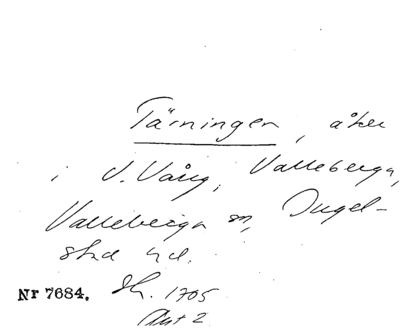 Tärningen, åker
i V. Vång, Valleberga,
Valleberga sn, Ingel-
stad hd.
Nr 7684. Sk. 1705
Akt 2